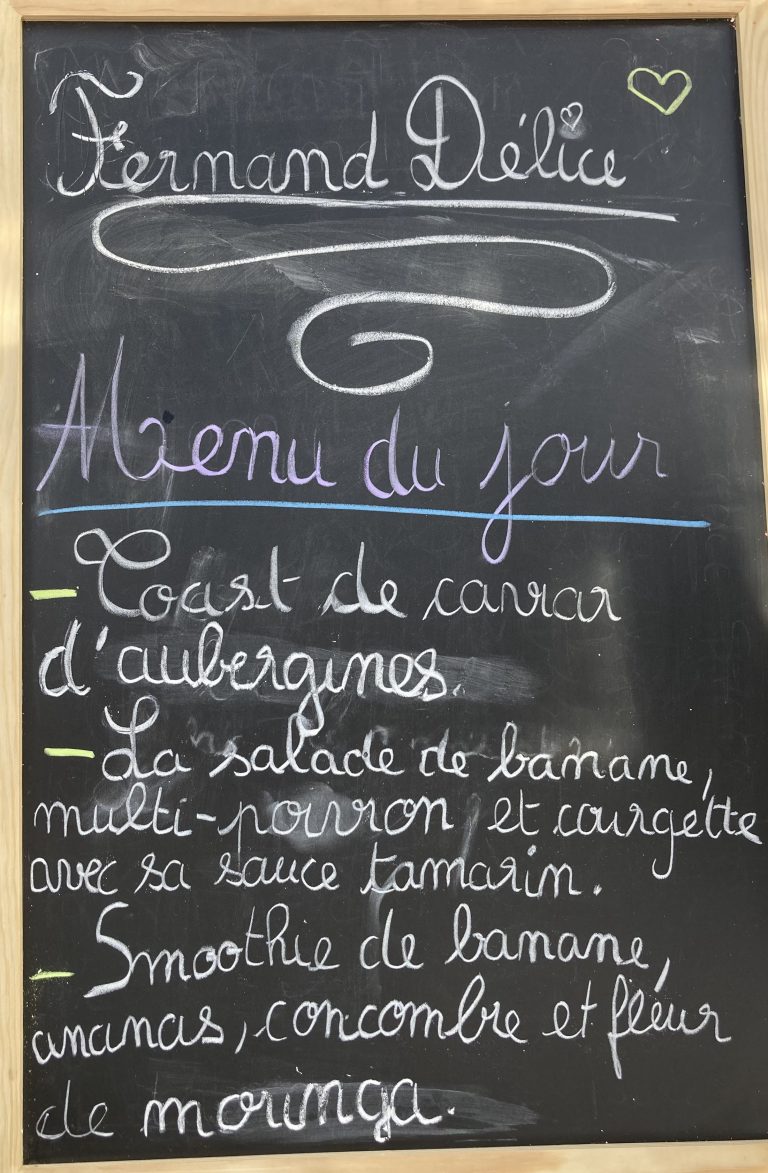 Fernand Délice
Menu du jour
- Toast de caviar
d'aubergines.
- La salade de banane,
multi-poivron et courgette
avec sa sauce tamarin.
- Smoothie de banane,
ananas, concombre et fleur
de moringa.